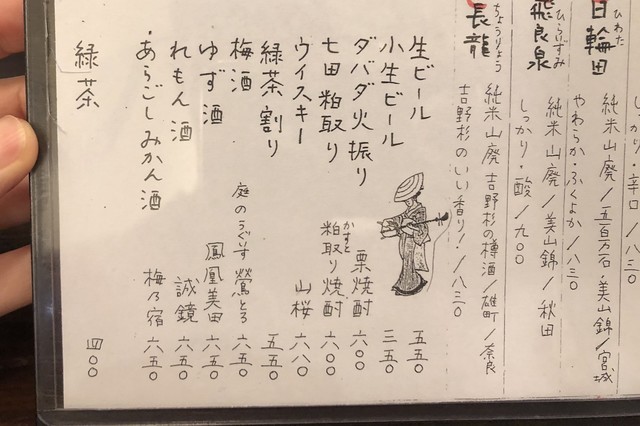 しっかり・辛口/八三〇
日輪田 ひわた
純米山廃/五百万石・美山錦/宮城
やわらか・ふくよか/八三〇
飛良泉 ひらいずみ
純米山廃/美山錦/秋田
しっかり・酸/九〇〇
長龍 ちょうりょう
純米山廃 吉野杉の樽酒/雄町/奈良
吉野杉のいい香り!/八三〇
生ビール 五五〇
小生ビール 三五〇
ダバダ火振り 栗焼酎 六〇〇
七田粕取り 粕取り焼酎 かすと 六〇〇
ウイスキー 山桜 六八〇
緑茶割り 五五〇
梅酒 庭のうぐいす 鶯とろ 六五〇
ゆず酒 鳳凰美田 六五〇
れもん酒 誠鏡 六五〇
あらごしみかん酒 梅乃宿 六五〇
緑茶 四〇〇